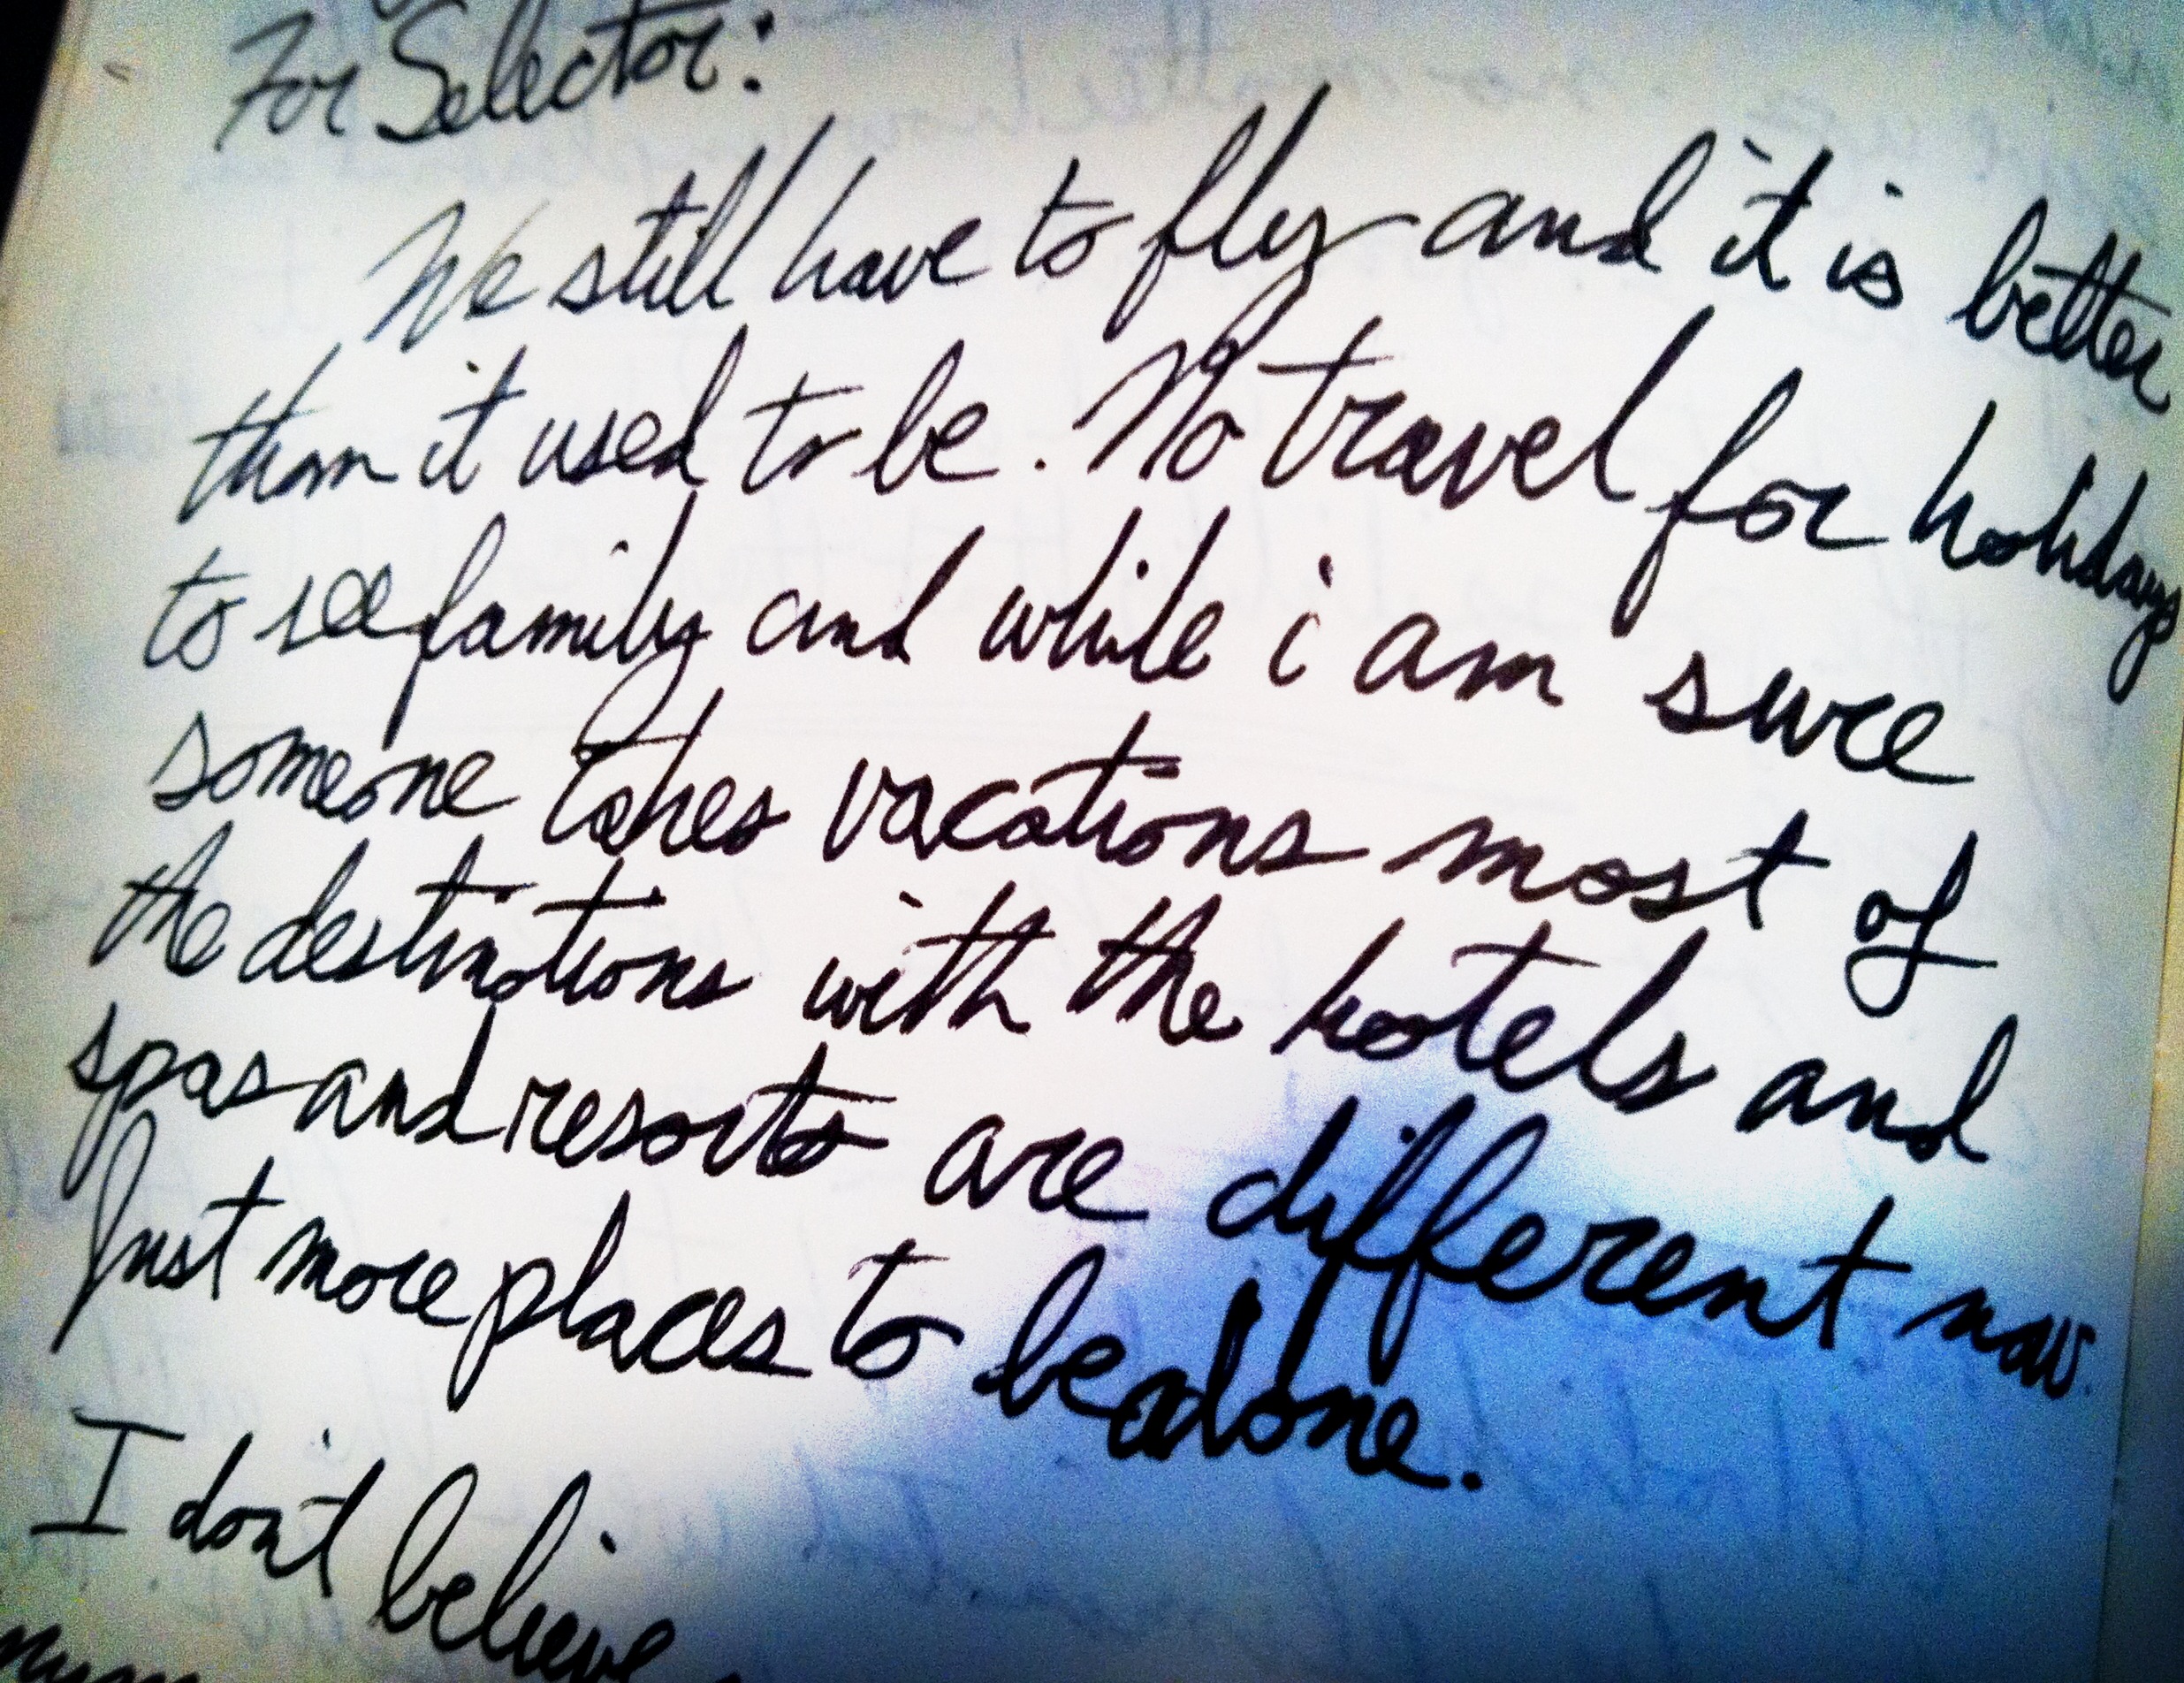 For Selector:
We still have to fly and it is better
than it used to be. No travel for holidays
to see family and while i am sure
someone takes vacations most of
the destinations with the hotels and
spas and resorts are different now.
Just more places to be alone.
I don't believe